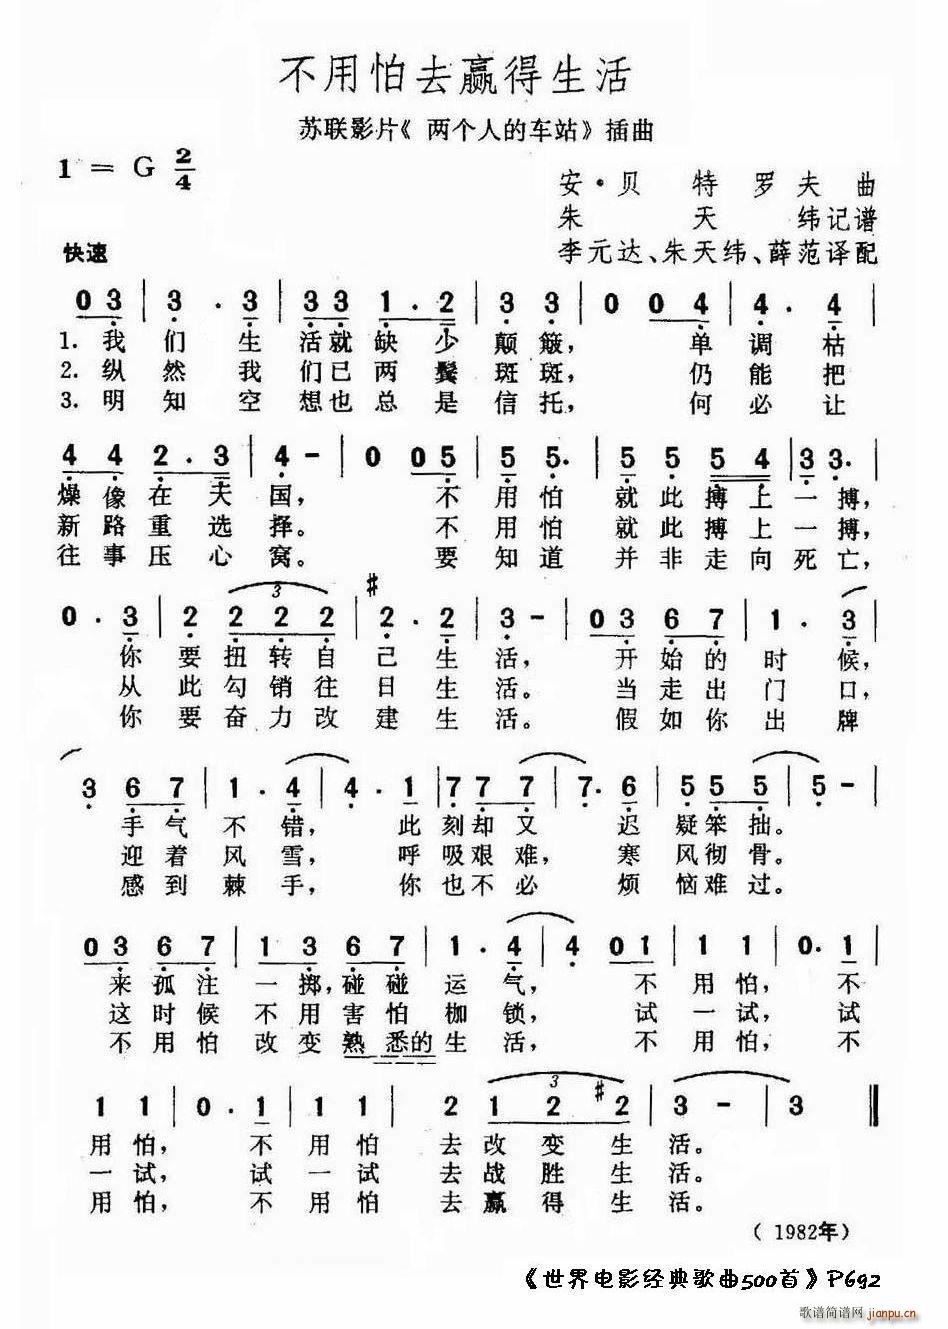 不用怕去赢得生活
苏联影片《两个人的车站》插曲
1 = G 2/4
安·贝特罗夫曲
朱天纬记谱
快速
李元达、朱天纬、薛范译配
0 3 | 3 . 3 | 3 3 1 . 2 | 3 3 | 0 0 4 | 4 . 4 |
1. 我们生活就缺少颠簸, 单调枯
2. 纵然我们已两鬓斑斑, 仍能把
3. 明知空想也总是信托, 何必让
4 4 2 . 3 | 4 - | 0 0 5 | 5 5 . | 5 5 5 4 | 3 3 . |
燥像在天国, 不用怕就此搏上一搏,
新路重选择。 不用怕就此搏上一搏,
往事压心窝。 要知道并非走向死亡,
0 . 3 | 2 2 2 2 | #2 . 2 | 3 - | 0 3 6 7 | 1 . 3 |
你要扭转自己生活, 开始的时候,
从此勾销往日生活。 当走出门口,
你要奋力改建生活。 假如你出牌
3 6 7 | 1 . 4 | 4 . 1 | 7 7 7 7 | 7 . 6 | 5 5 5 | 5 - |
手气不错, 此刻却又迟疑笨拙。
迎着风雪, 呼吸艰难, 寒风彻骨。
感到棘手, 你也不必烦恼难过。
0 3 6 7 | 1 3 6 7 | 1 . 4 | 4 0 1 | 1 1 | 0 . 1 |
来孤注一掷, 碰碰运气, 不用怕, 不
这时候不用害怕枷锁, 试一试, 试
不用怕改变熟悉的生活, 不用怕, 不
1 1 | 0 . 1 | 1 1 | 2 1 2 #2 | 3 - | 3 ||
用怕, 不用怕去改变生活。
一试, 试一试去战胜生活。
用怕, 不用怕去赢得生活。
(1982年)
《世界电影经典歌曲500首》P692
歌谱简谱网
jianpu.cn